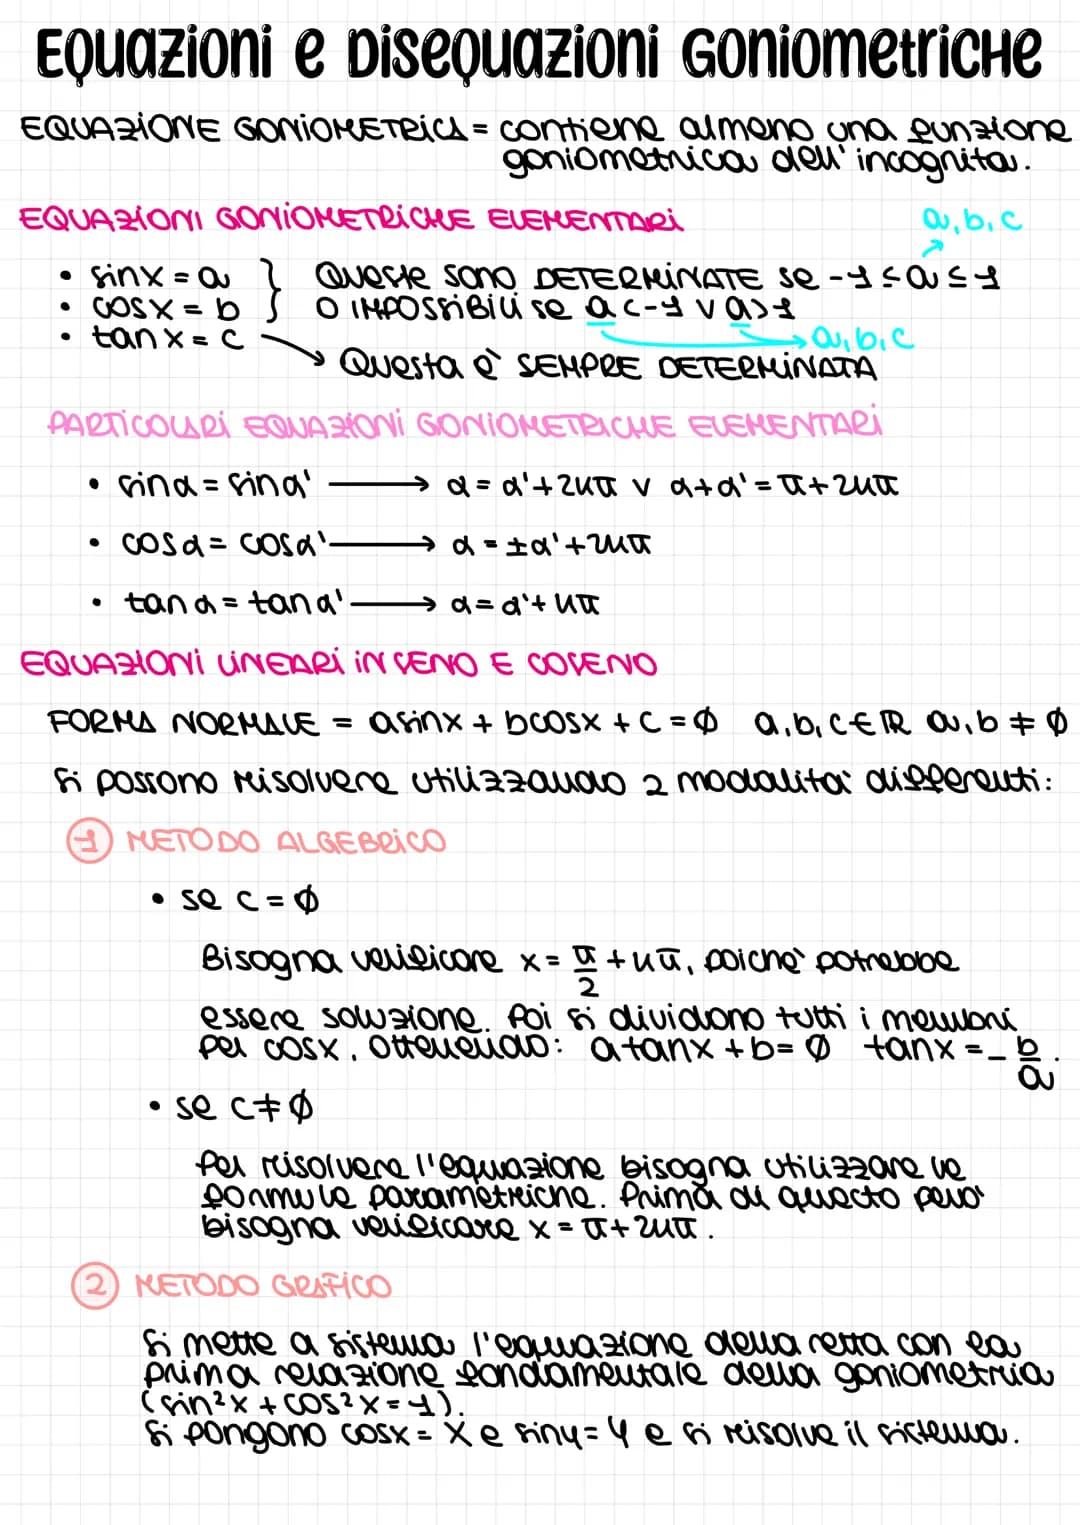 Equazioni e Disequazioni Goniometriche
EQUAZIONE GONIOMETRICA = contiene almeno una funzione
goniometrica dell'incognita.
EQUAZIONI GONIOMETRICHE ELEMENTARI
a, b, c
• sinx = a } Queste sono DETERMINATE se -1 ≤ a ≤ 1
• cosx = b } o IMPOSSIBILI se a < -1 ∨ a > 1
• tanx = c
→ a, b, c
→ Questa è SEMPRE DETERMINATA
PARTICOLARI EQUAZIONI GONIOMETRICHE ELEMENTARI
• sinα = sinα' → α = α' + 2kπ ∨ α + α' = π + 2kπ
• cosα = cosα' → α = ±α' + 2kπ
• tanα = tanα' → α = α' + kπ
EQUAZIONI LINEARI IN SENO E COSENO
FORMA NORMALE = asinx + bcosx + c = 0 a, b, c ∈ ℝ a, b ≠ 0
Si possono risolvere utilizzando 2 modalità differenti:
1 METODO ALGEBRICO
• se c = 0
Bisogna verificare x = π/2 + kπ, poichè potrebbe
essere soluzione. Poi si dividono tutti i membri
per cosx, ottenendo: atanx + b = 0 tanx = - b/a.
• se c ≠ 0
Per risolvere l'equazione bisogna utilizzare le
formule parametriche. Prima di questo però
bisogna verificare x = π + 2kπ.
2 METODO GRAFICO
Si mette a sistema l'equazione della retta con la
prima relazione fondamentale della goniometria
(sin²x + cos²x = 1).
Si pongono cosx = X e siny = Y e si risolve il sistema.